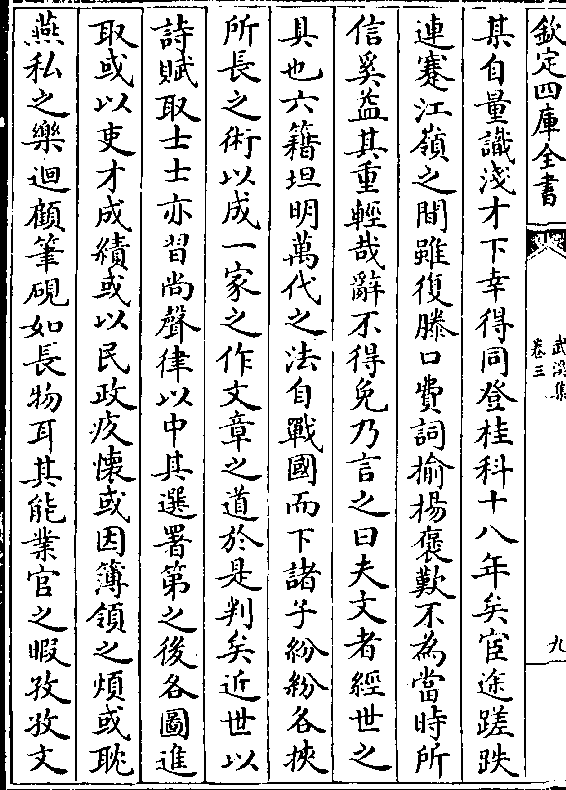 欽定四庫全書
武溪集
卷三
九
某自量識淺才下幸得同登桂科十八年矣宦途蹉跌
連蹇江嶺之間雖復滕口費詞揄揚褒歎不為當時所
信奚益其重輕哉辭不得免乃言之曰夫文者經世之
具也六籍坦明萬代之法自戰國而下諸子紛紛各挾
所長之術以成一家之作文章之道於是判矣近世以
詩賦取士士亦習尚聲律以中其選署第之後各圖進
取或以吏才成績或以民政疚懷或因簿領之煩或耽
燕私之樂迴顧筆硯如長物耳其能業官之暇孜孜文